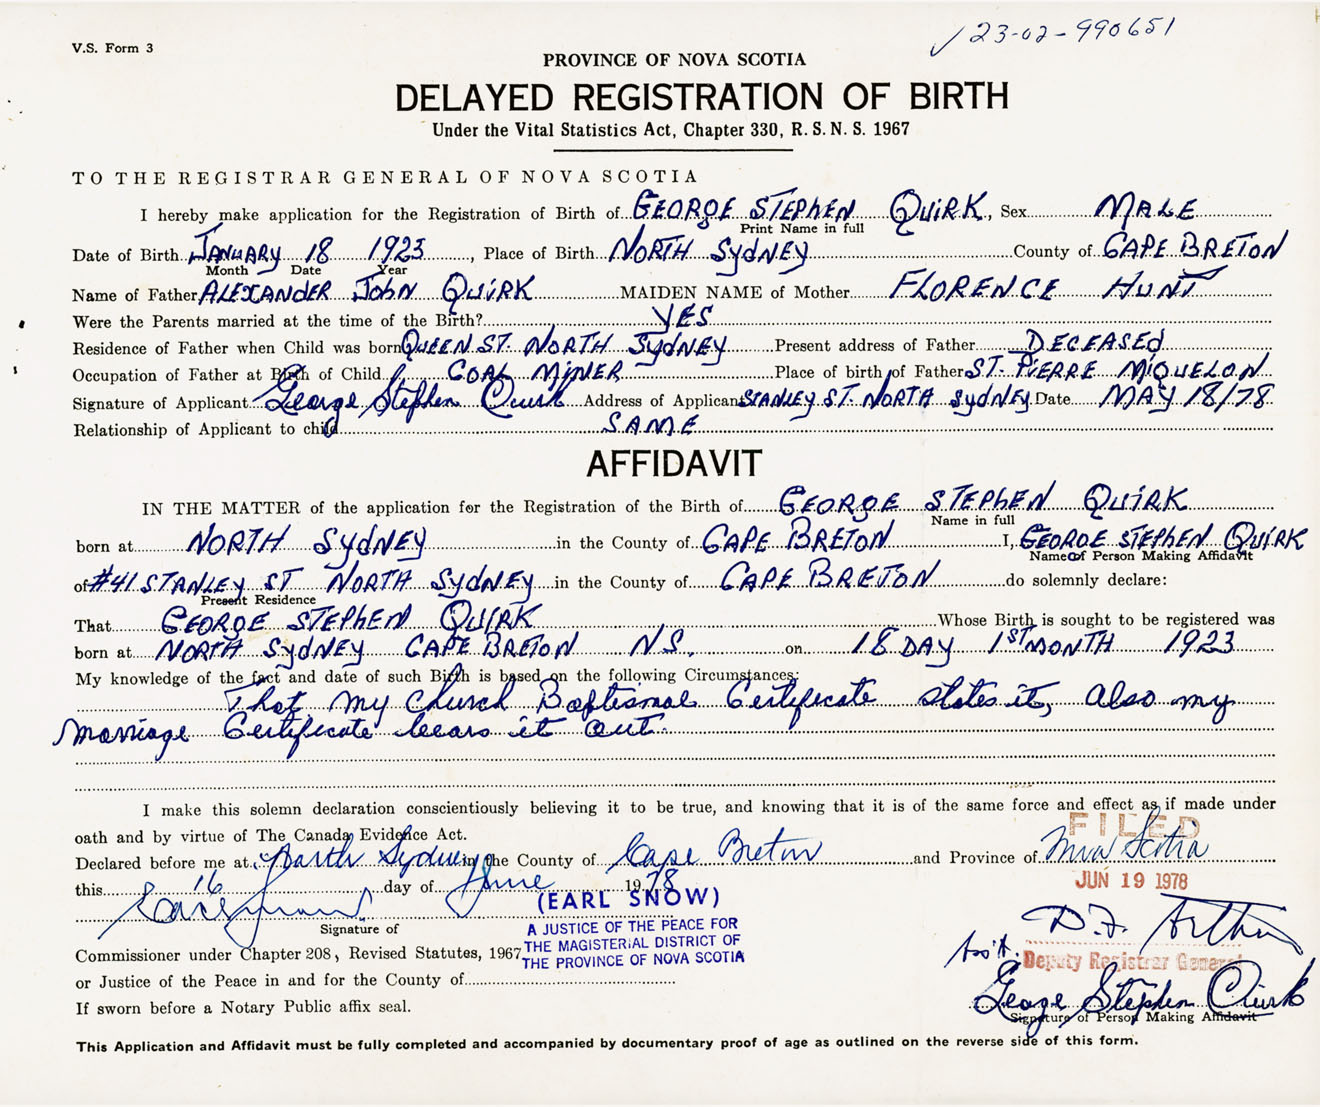 V.S. Form 3
✓ 23-02-990651
PROVINCE OF NOVA SCOTIA
DELAYED REGISTRATION OF BIRTH
Under the Vital Statistics Act, Chapter 330, R. S. N. S. 1967
TO THE REGISTRAR GENERAL OF NOVA SCOTIA
I hereby make application for the Registration of Birth of GEORGE STEPHEN QUIRK, Sex MALE
Print Name in full
Date of Birth JANUARY 18 1923, Place of Birth NORTH SYDNEY County of CAPE BRETON
Month Date Year
Name of Father ALEXANDER JOHN QUIRK MAIDEN NAME of Mother FLORENCE HUNT
Were the Parents married at the time of the Birth? YES
Residence of Father when Child was born QUEEN ST. NORTH SYDNEY Present address of Father DECEASED
Occupation of Father at Birth of Child COAL MINER Place of birth of Father ST. PIERRE MIQUELON
Signature of Applicant George Stephen Quirk Address of Applicant STANLEY ST. NORTH SYDNEY Date MAY 18/78
Relationship of Applicant to child SAME
AFFIDAVIT
IN THE MATTER of the application for the Registration of the Birth of GEORGE STEPHEN QUIRK
Name in full
born at NORTH SYDNEY in the County of CAPE BRETON I, GEORGE STEPHEN QUIRK
Name of Person Making Affidavit
of #41 STANLEY ST NORTH SYDNEY in the County of CAPE BRETON do solemnly declare:
Present Residence
That GEORGE STEPHEN QUIRK Whose Birth is sought to be registered was
born at NORTH SYDNEY CAPE BRETON N.S. on 18 DAY 1ST MONTH 1923
My knowledge of the fact and date of such Birth is based on the following Circumstances:
That my Church Baptismal Certificate states it, also my
marriage Certificate bears it out.
I make this solemn declaration conscientiously believing it to be true, and knowing that it is of the same force and effect as if made under
oath and by virtue of The Canada Evidence Act.
FILED
Declared before me at North Sydney in the County of Cape Breton and Province of Nova Scotia
this 16 day of June 1978
JUN 19 1978
(EARL SNOW)
Earl Snow
Signature of
A JUSTICE OF THE PEACE FOR
THE MAGISTERIAL DISTRICT OF
THE PROVINCE OF NOVA SCOTIA
D.F. Arthur
Commissioner under Chapter 208, Revised Statutes, 1967
Ass't. Deputy Registrar General
or Justice of the Peace in and for the County of
George Stephen Quirk
Signature of Person Making Affidavit
If sworn before a Notary Public affix seal.
This Application and Affidavit must be fully completed and accompanied by documentary proof of age as outlined on the reverse side of this form.